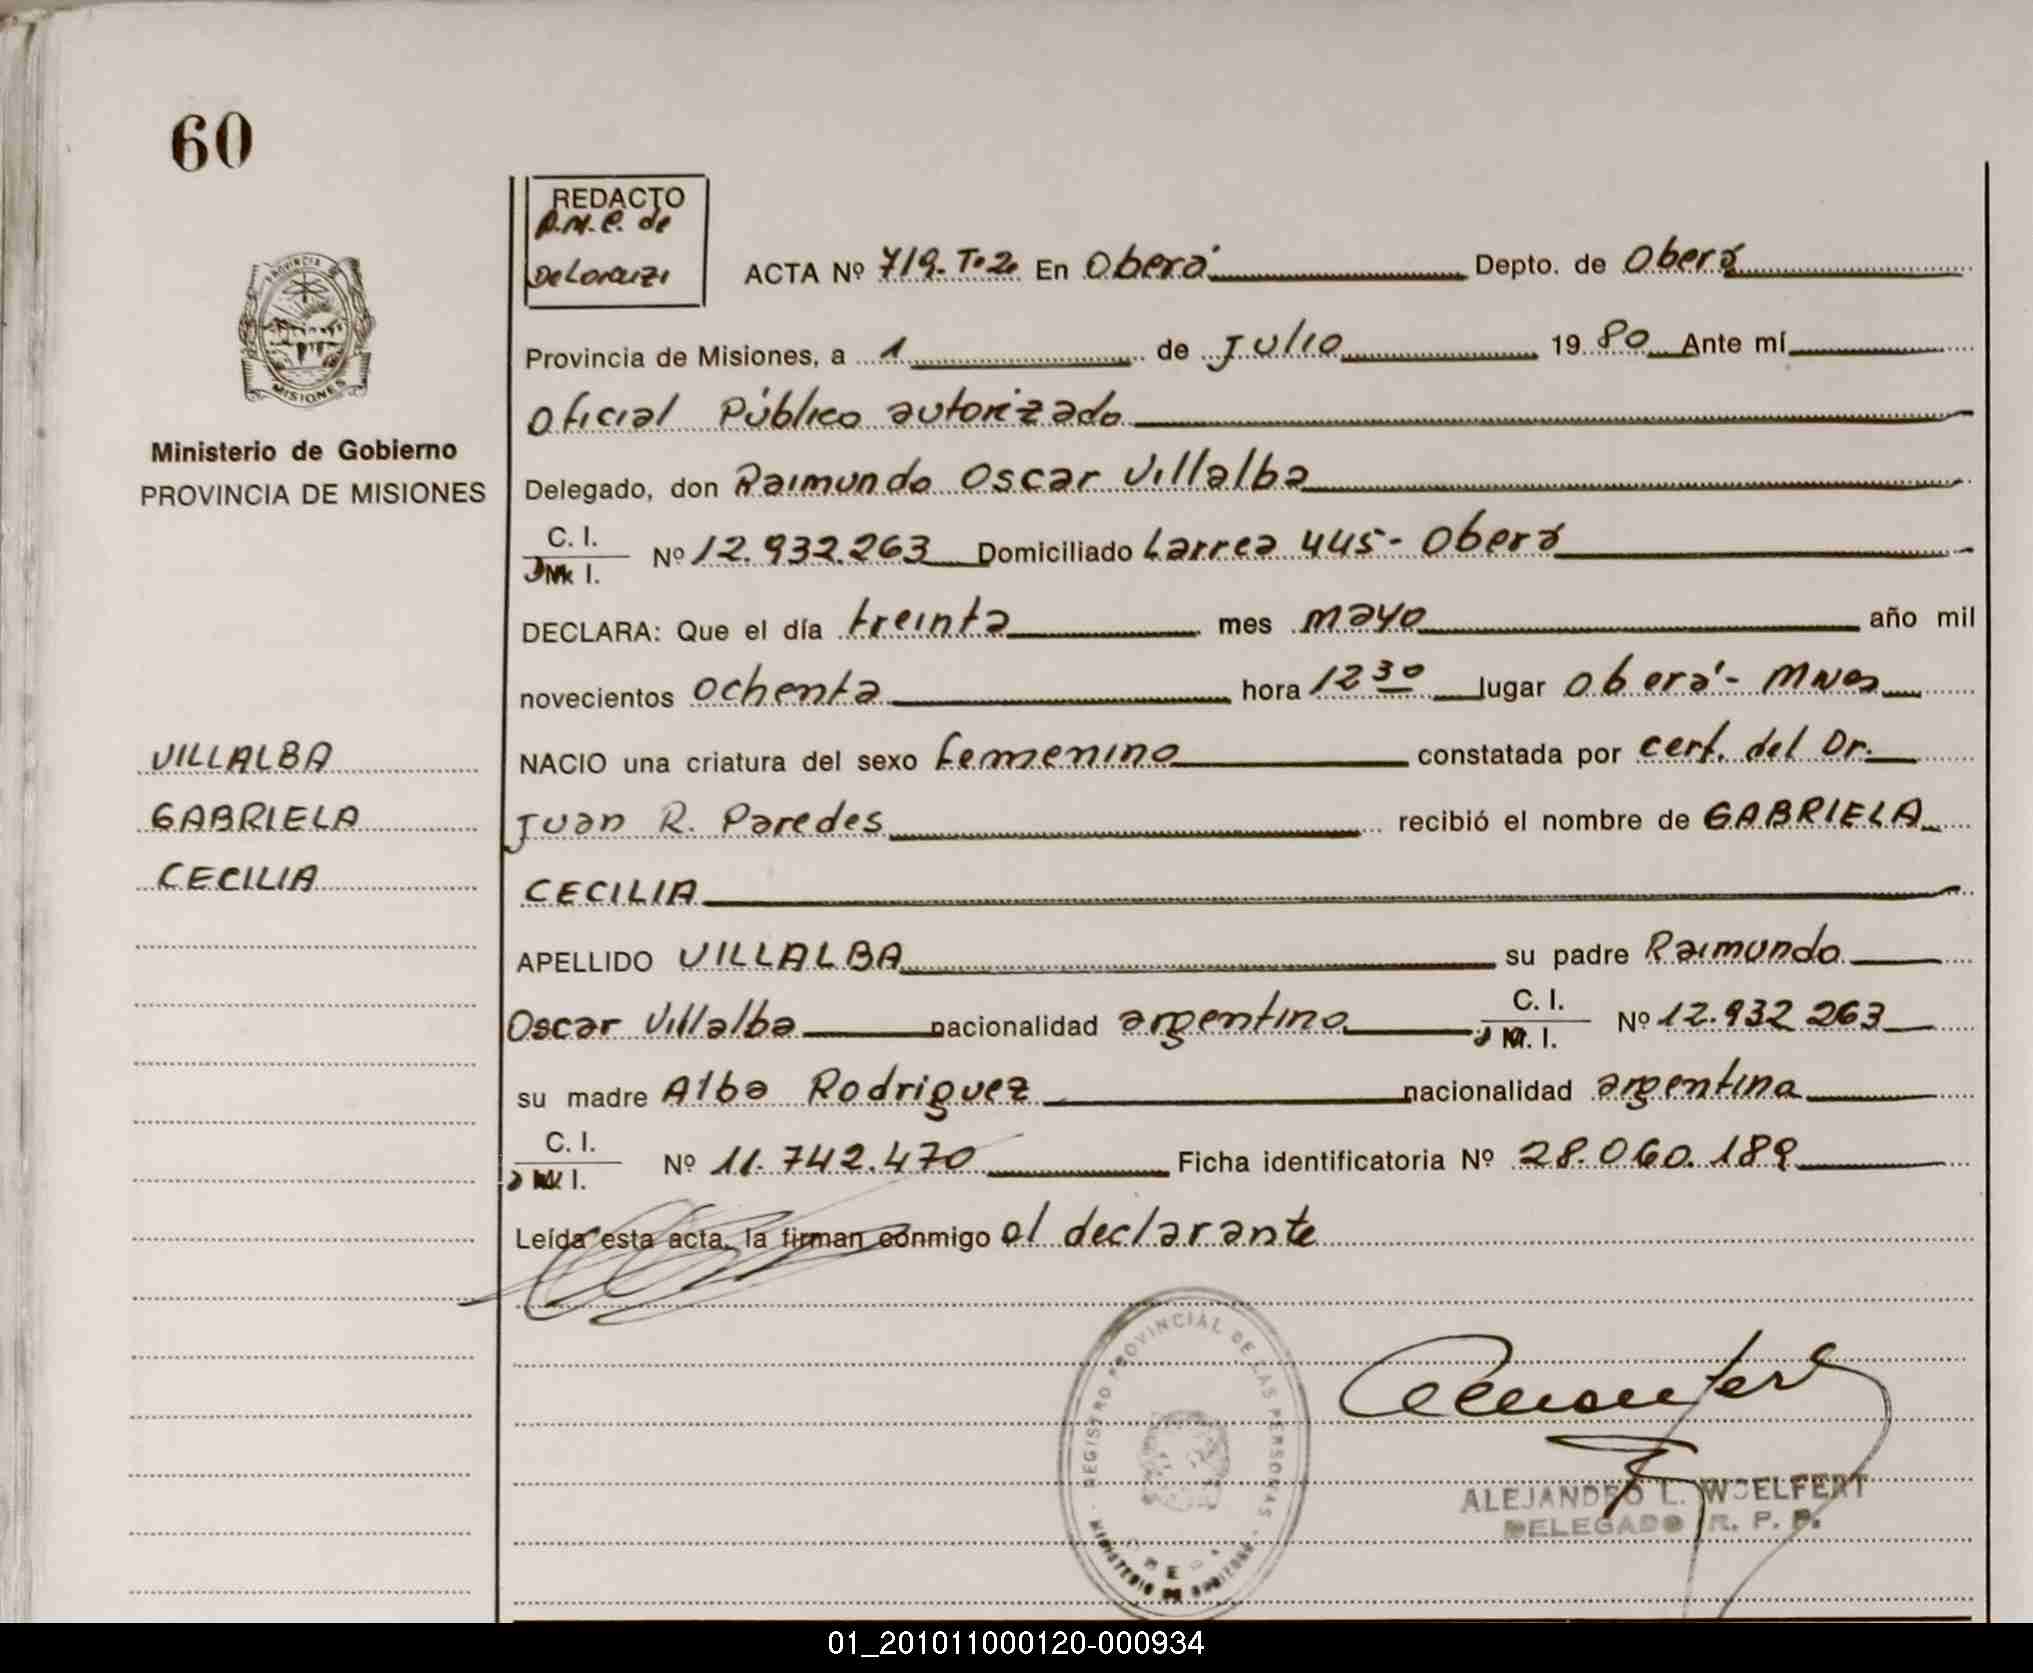 60
REDACTO
A.M.C. de
De Lorenzi
ACTA Nº 719. Tº 2º En Oberá Depto. de Oberá
PROVINCIA
MISIONES
Provincia de Misiones, a 1 de Julio 1980 Ante mí
Oficial Público autorizado
Ministerio de Gobierno
PROVINCIA DE MISIONES
Delegado, don Raimundo Oscar Villalba
C. I.
Nº 12.932.263 Domiciliado Larrea 445- Oberá
I.
DECLARA: Que el día treinta mes mayo año mil
novecientos ochenta hora 12 30 lugar Oberá- Mnes
VILLALBA
NACIO una criatura del sexo femenino constatada por cert. del Dr.
GABRIELA
Juan R. Paredes recibió el nombre de GABRIELA
CECILIA
CECILIA
APELLIDO VILLALBA su padre Raimundo
Oscar Villalba nacionalidad argentino C. I. Nº 12.932 263
I.
su madre Alba Rodriguez nacionalidad argentina
C. I.
Nº 11.742.470 Ficha identificatoria Nº 28.060.189
I.
Leída esta acta, la firman conmigo el declarante
REGISTRO PROVINCIAL DE LAS PERSONAS
MINISTERIO DE GOBIERNO
ALEJANDRO L. WOELFERT
DELEGADO R. P. P.
01_201011000120-000934